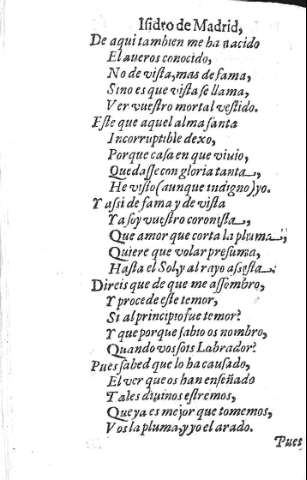 Isidro de Madrid,
De aqui tambien me ha nacido
El aueros conocido,
No de vista, mas de fama,
Sino es que vista se llama,
Ver vuestro mortal vestido.
Este que aquel alma santa
Incorruptible dexo,
Porque casa en que viuio,
Quedasse con gloria tanta,
He visto (aunque indigno) yo.
Y assi de fama y de vista
Ya soy vuestro coronista,
Que amor que corta la pluma,
Quiere que volar presuma,
Hasta el Sol, y al rayo assista.
Direis que de que me assombro,
Y procede este temor,
Si al principio fue temor?
Y que porque sabio os nombro,
Quando vos sois Labrador?
Pues sabed que lo ha causado,
El ver que os han enseñado
Tales diuinos estremos,
Que ya es mejor que tomemos,
Vos la pluma, y yo el arado.
Pues